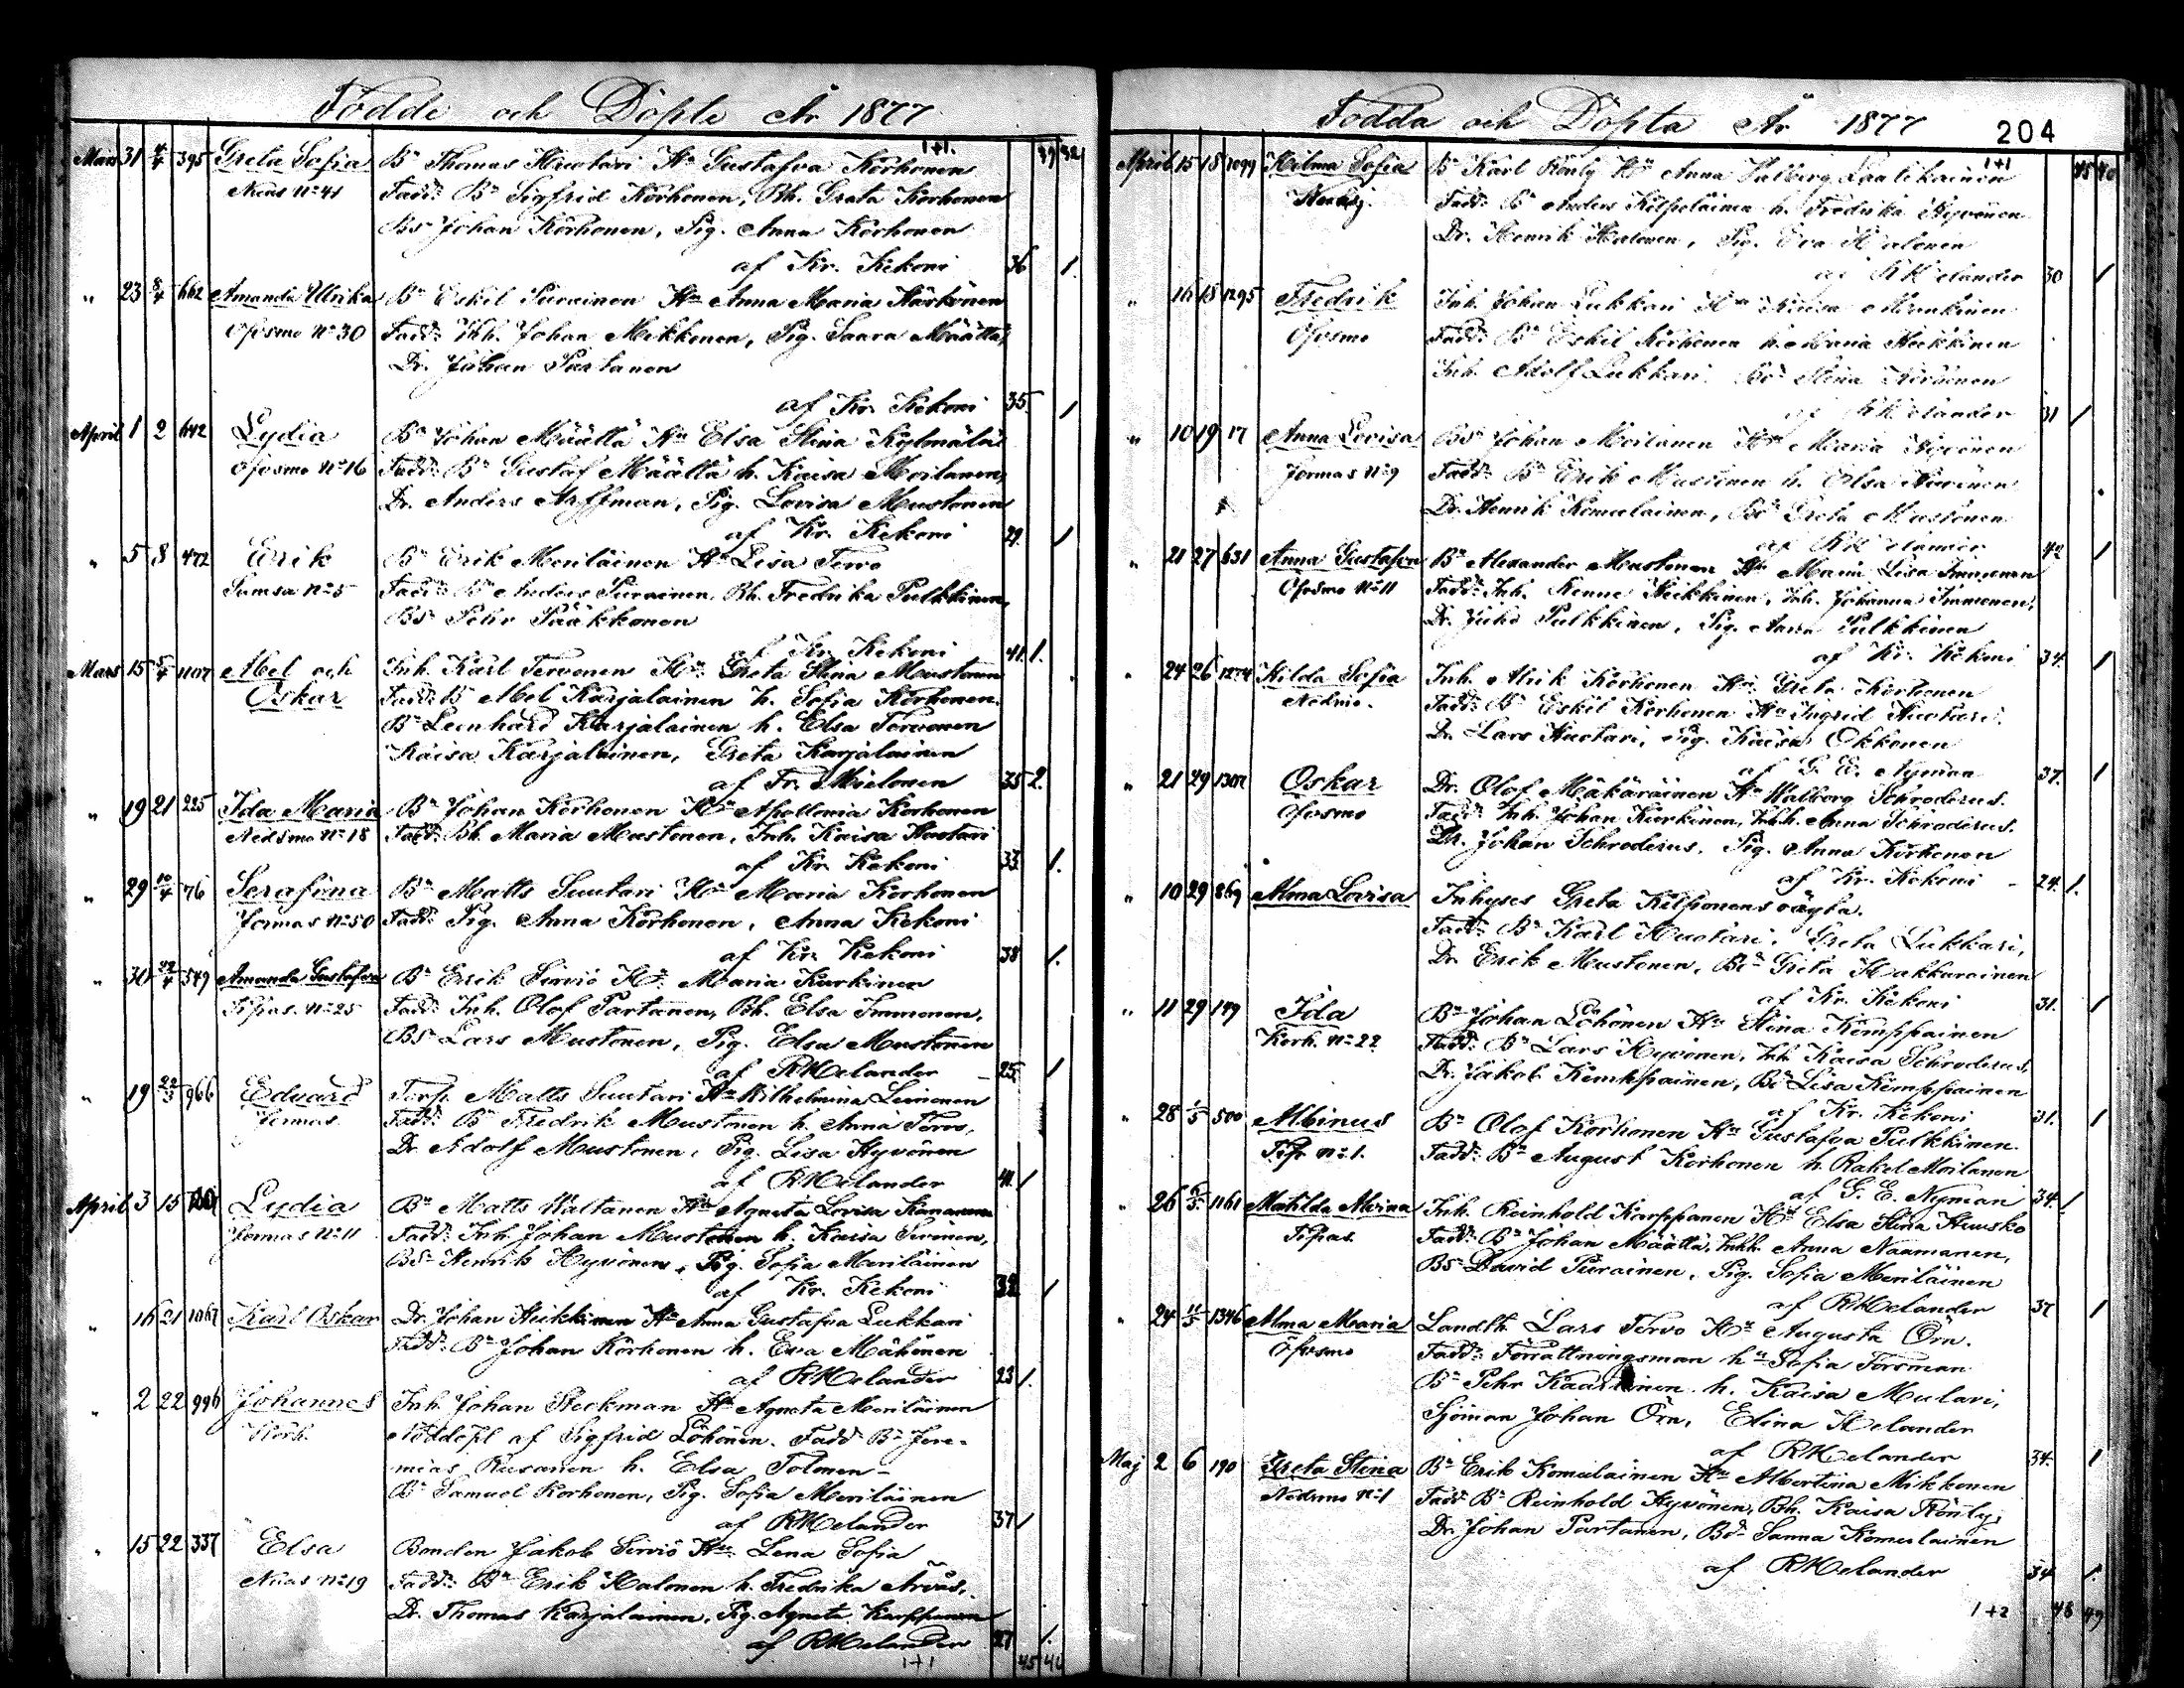 Födde och Döpte År 1877
Mars 31 4/4 395 Greta Sofia Bn Thomas Huotari Hu Gustafva Korhonen 1+1. 39 32
Nuas No 41 Fadd: Bn Sigfrid Korhonen, Bh. Greta Korhonen
Bs Johan Korhonen, Pig. Anna Korhonen
af Kr. Kekoni 36 1.
" 23 8/4 662 Amanda Ullrika Bn Eskil Purainen Hu Anna Maria Härkönen
Ofvsmo No 30 Fadd: Inh. Johan Mikkonen, Pig. Saara Määttä,
Dr. Johan Partanen
af Kr. Kekoni 35. 1
April 1 2 642 Lydia Bn Johan Määttä Hu Elsa Stina Kylmälä
Ofvsmo No 16 Fadd: Bn Gustaf Määttä h. Kaisa Moilanen,
Dr. Anders Arffman, Pig. Lovisa Mustonen
af Kr. Kekoni 29. 1
" 5 8 472 Erik Bn Erik Meriläinen Hu Lisa Tervo
Sumsa No 5 Fadd: Bn Anders Purainen, Bh. Fredrika Pulkkinen,
Bs Pehr Pääkkönen
af Kr. Kekoni 41. 1.
Mars 15 5/4 1107 Abel och Inh. Karl Tervonen Hu Greta Stina Mustonen
Oskar Fadd: Bn Abel Karjalainen h. Sofia Korhonen.
Bn Leonhard Karjalainen h. Elsa Tervonen
Kaisa Karjalainen, Greta Karjalainen
af Fr. Mielonen 35 2.
" 19 21 225 Ida Maria Bn Johan Korhonen Hu Apollonia Korhonen
Nedsmo No 18 Fadd: Bh. Maria Mustonen, Inh. Kaisa Huotari
af Kr. Kekoni 33. 1.
" 29 10/4 76 Serafina Bn Matts Suutari Hu Maria Korhonen
Jormas No 50 Fadd: Pig. Anna Korhonen, Anna Kekoni
af Kr. Kekoni 38 1.
" 30 549 Amanda Gustafva Bn Erik Sirviö Hu Maria Kurkinen
Tipas. No 25 Fadd: Inh. Olof Partanen, Bh. Elsa Immonen,
Bs Lars Mustonen, Pig. Elsa Mustonen
af RHelander 25. 1
" 19 22/3 966 Eduard Torp. Matts Suutari Hu Wilhelmina Leinonen
Jormas Fadd: Bn Fredrik Mustonen h. Anna Tervo,
Dr. Adolf Mustonen, Pig. Lisa Hyvönen
af RHelander 41. 1
April 3 15 Lydia Bn Matts Valtanen Hu Agneta Lovisa
Jormas No 11 Fadd: Inh. Johan Mustonen h. Kaisa Sirvinen,
Bs Henrik Hyvönen, Pig. Sofia Meriläinen
af Kr. Kekoni 32 1
" 16 21 1067 Karl Oskar Dr. Johan Heikkinen Hu Anna Gustafva Lukkari
Fadd: Bn Johan Korhonen h. Eva Mähönen
af RHelander 23 1.
" 2 22 996 Johannes Inh. Johan Steckman Hu Agneta Meriläinen
Korh. Nöddopt af Sigfrid Löhönen. Fadd: Bn Jere-
mias Rusanen h. Elsa Tolonen -
Bn Samuel Korhonen, Pig. Sofia Meriläinen
af RHelander 37 1
" 15 22 337 Elsa Bonden Jakob Sirviö Hu Lena Sofia
Nuas No 19 Fadd: Bn Erik Halonen h. Fredrika
Dr. Thomas Karjalainen, Pig. Agneta Karppinen
af RHelander 27 1.
1+1 45 40
Födda och Döpta År 1877 204
April 15 18 1099 Hilma Sofia Bn Karl Rönty Hu Anna Valborg Laatikainen 1+1 45 40
Fadd: Bn Anders Kilpeläinen h. Fredrika Hyvönen
Dr. Henrik Halonen, Pig. Eva Halonen
af RHelander 30 1
" 16 18 1295 Fredrik Inh. Johan Lukkari Hu Kaisa Mankinen
Ofvsmo Fadd: Bn Eskil Korhonen h. Maria Heikkinen
Inh. Adolf Lukkari. Bd Stina Korhonen
af RHelander 31 1
" 10 19 17 Anna Lovisa Bs Johan Moilanen Hu Maria Hyvönen
Jormas No 9 Fadd: Bn Erik Mustonen h. Elsa
Dr. Henrik Komulainen, Bd Greta Mustonen
af RHelander 42 1
" 21 27 631 Anna Gustafva Bn Alexander Mustonen Hu Maria Lisa Immonen
Ofvsmo No 11 Fadd: Inh. Heikkinen, Inh. Johanna Immonen,
Dr. Juho Pulkkinen, Pig. Anna Pulkkinen
af Kr. Kekoni 34. 1
" 24 26 Hilda Sofia Inh. Korhonen Hu Greta Korhonen
Nedmo. Fadd: Bn Eskil Korhonen Hu Ingrid Huotari.
Dr. Lars Huotari, Pig. Kaisa Okkonen
af G. E. Nyman 37. 1
" 21 29 1307 Oskar Dr. Olof Mäkäräinen Hu Walborg Schroderus.
Ofvsmo Fadd: Inh. Johan Kurkinen, Inhh. Anna Schroderus.
Dr. Johan Schroderus. Pig. Anna Korhonen
af Kr. Kekoni - 24. 1.
" 10 29 869 Alma Lovisa Inhyses Greta Kilponens oägta.
Fadd: Bn Karl Huotari, Greta Lukkari,
Dr. Erik Mustonen, Bd Greta Hakkarainen
af Kr. Kekoni 31. 1
" 11 29 149 Ida Bn Johan Löhönen Hu Stina Kemppainen
Kork. No 22 Fadd: Bn Lars Hyvönen, Inh. Kaisa Schroderus,
Dr. Jakob Kemppainen, Bd Lisa Kemppainen
af Kr. Kekoni 31. 1
" 28 1/5 500 Albinus Bn Olof Korhonen Hu Gustafva Pulkkinen.
Tip. No 1. Fadd: Bn August Korhonen h. Rakel Moilanen
af G. E. Nyman 34. 1
" 26 6/5 1161 Matilda Alvina Inh. Reinhold Karppanen Hu Elsa Stina Huusko
Tipas. Fadd: Bn Johan Määttä, Inhh. Anna Naamanen,
Bs David Purainen, Pig. Sofia Meriläinen
af RHelander 37 1
" 24 11/5 1346 Alma Maria Landth. Lars Tervo Hu Augusta Örn.
Öfvsmo Fadd: Förrättningsman hu Sofia Forsman
Bn Pehr h. Kaisa Mulari,
Sjöman Johan Örn, Elina Helander
af RHelander 34. 1
Maj 2 6 190 Greta Stina Bn Erik Komulainen Hu Albertina Mikkonen
Nedsmo No 1 Fadd: Bn Reinhold Hyvönen, Bh. Kaisa Rönty,
Dr. Johan Partanen, Bd Sanna Komulainen
af RHelander 34 1.
1+2 48 49